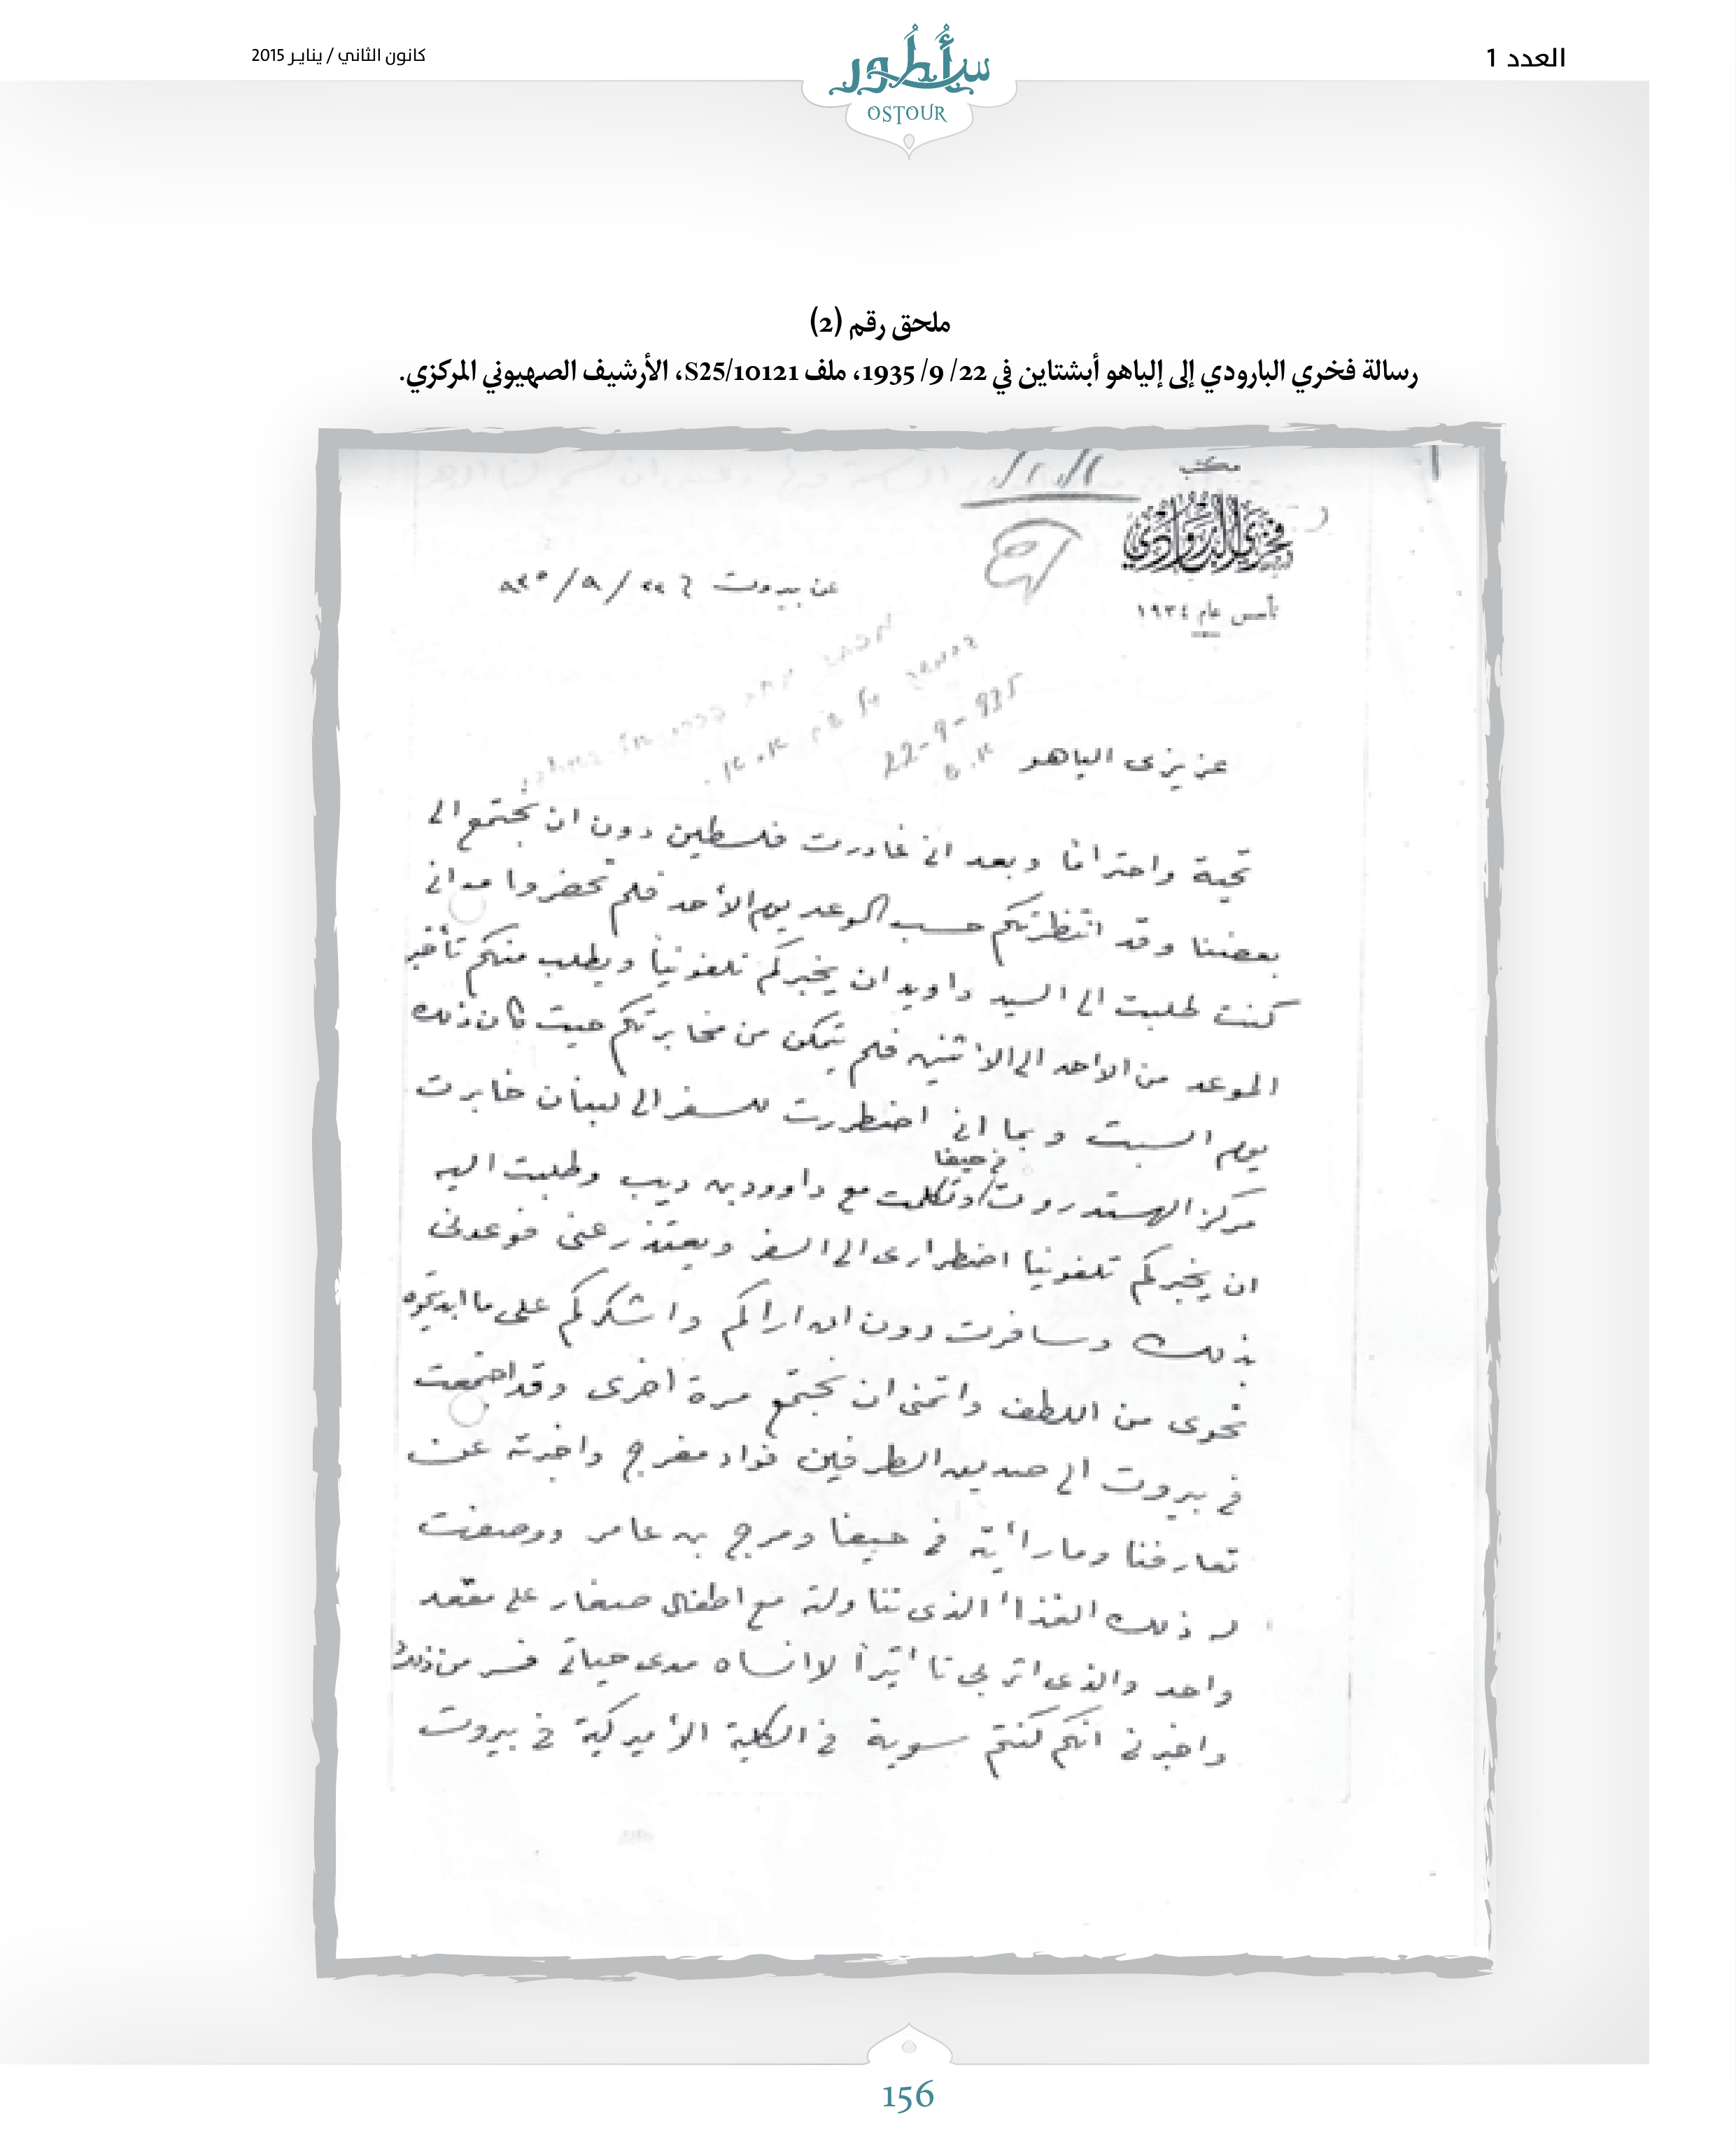 العدد 1
كانون الثاني / يناير 2015
سأطور
OSTOUR
ملحق رقم (2)
رسالة فخري البارودي إلى إلياهو أبشتاين في 22/ 9/ 1935، ملف S25/10121، الأرشيف الصهيوني المركزي.
مكتب
فخري البارودي
تأسس عام ١٩٣٤
عن بيروت
22-9-935
عزيزى الياهو
تحية واحتراما وبعد انى غادرت فلسطين دون ان نجتمع الى
بعضنا وقد انتظرتكم حسب الوعد يوم الأحد فلم تحضروا مع انى
كنت طلبت الى السيد داويد ان يخبركم تلفونياً ويطلب منكم تأخير
الموعد من الاحد الى الاثنين فلم يتمكن من مخابرتكم حيث كان ذلك
يوم السبت وبما انى اضطررت للسفر الى لبنان خابرت
مركز الهستدروت في حيفا وتكلمت مع داوود بن ديب وطلبت اليه
ان يخبركم تلفونيا اضطرارى الى السفر ويعتذر عنى فوعدنى
بذلك وسافرت دون ان اراكم واشكركم على ما ابديتموه
نحوى من اللطف واتمنى ان نجتمع مرة أخرى وقد اجتمعت
في بيروت الى صديق الطرفين فؤاد مفرج واخبرته عن
تعارفنا وما رأيته في حيفا ومرج بن عامر ووصفت
له ذلك الغذاء الذى تناولته مع اطفال صغار على مقعد
واحد والذى اثر بى تأثيراً لا انساه مدى حياتي فسر من ذلك
واخبرنى انكم كنتم سوية في الكلية الأميركية في بيروت
156